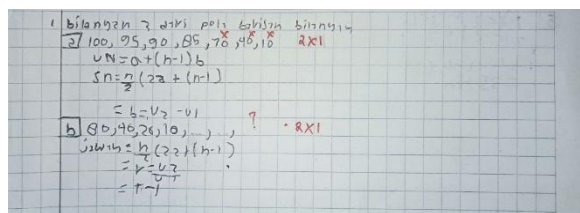 1. bilangan 2 dari pola barisan bilangan
a) 100, 95, 90, 85, 70, 40, 10 2x1
UN = a + (n-1) b
Sn = n/2 (2a + (n-1)
= b = U2 - U1
b) 80, 40, 20, 10, ..., ..., ? 2x1
jawab = n/2 (2a + (n-1)
= r = U2/U1
= r-1